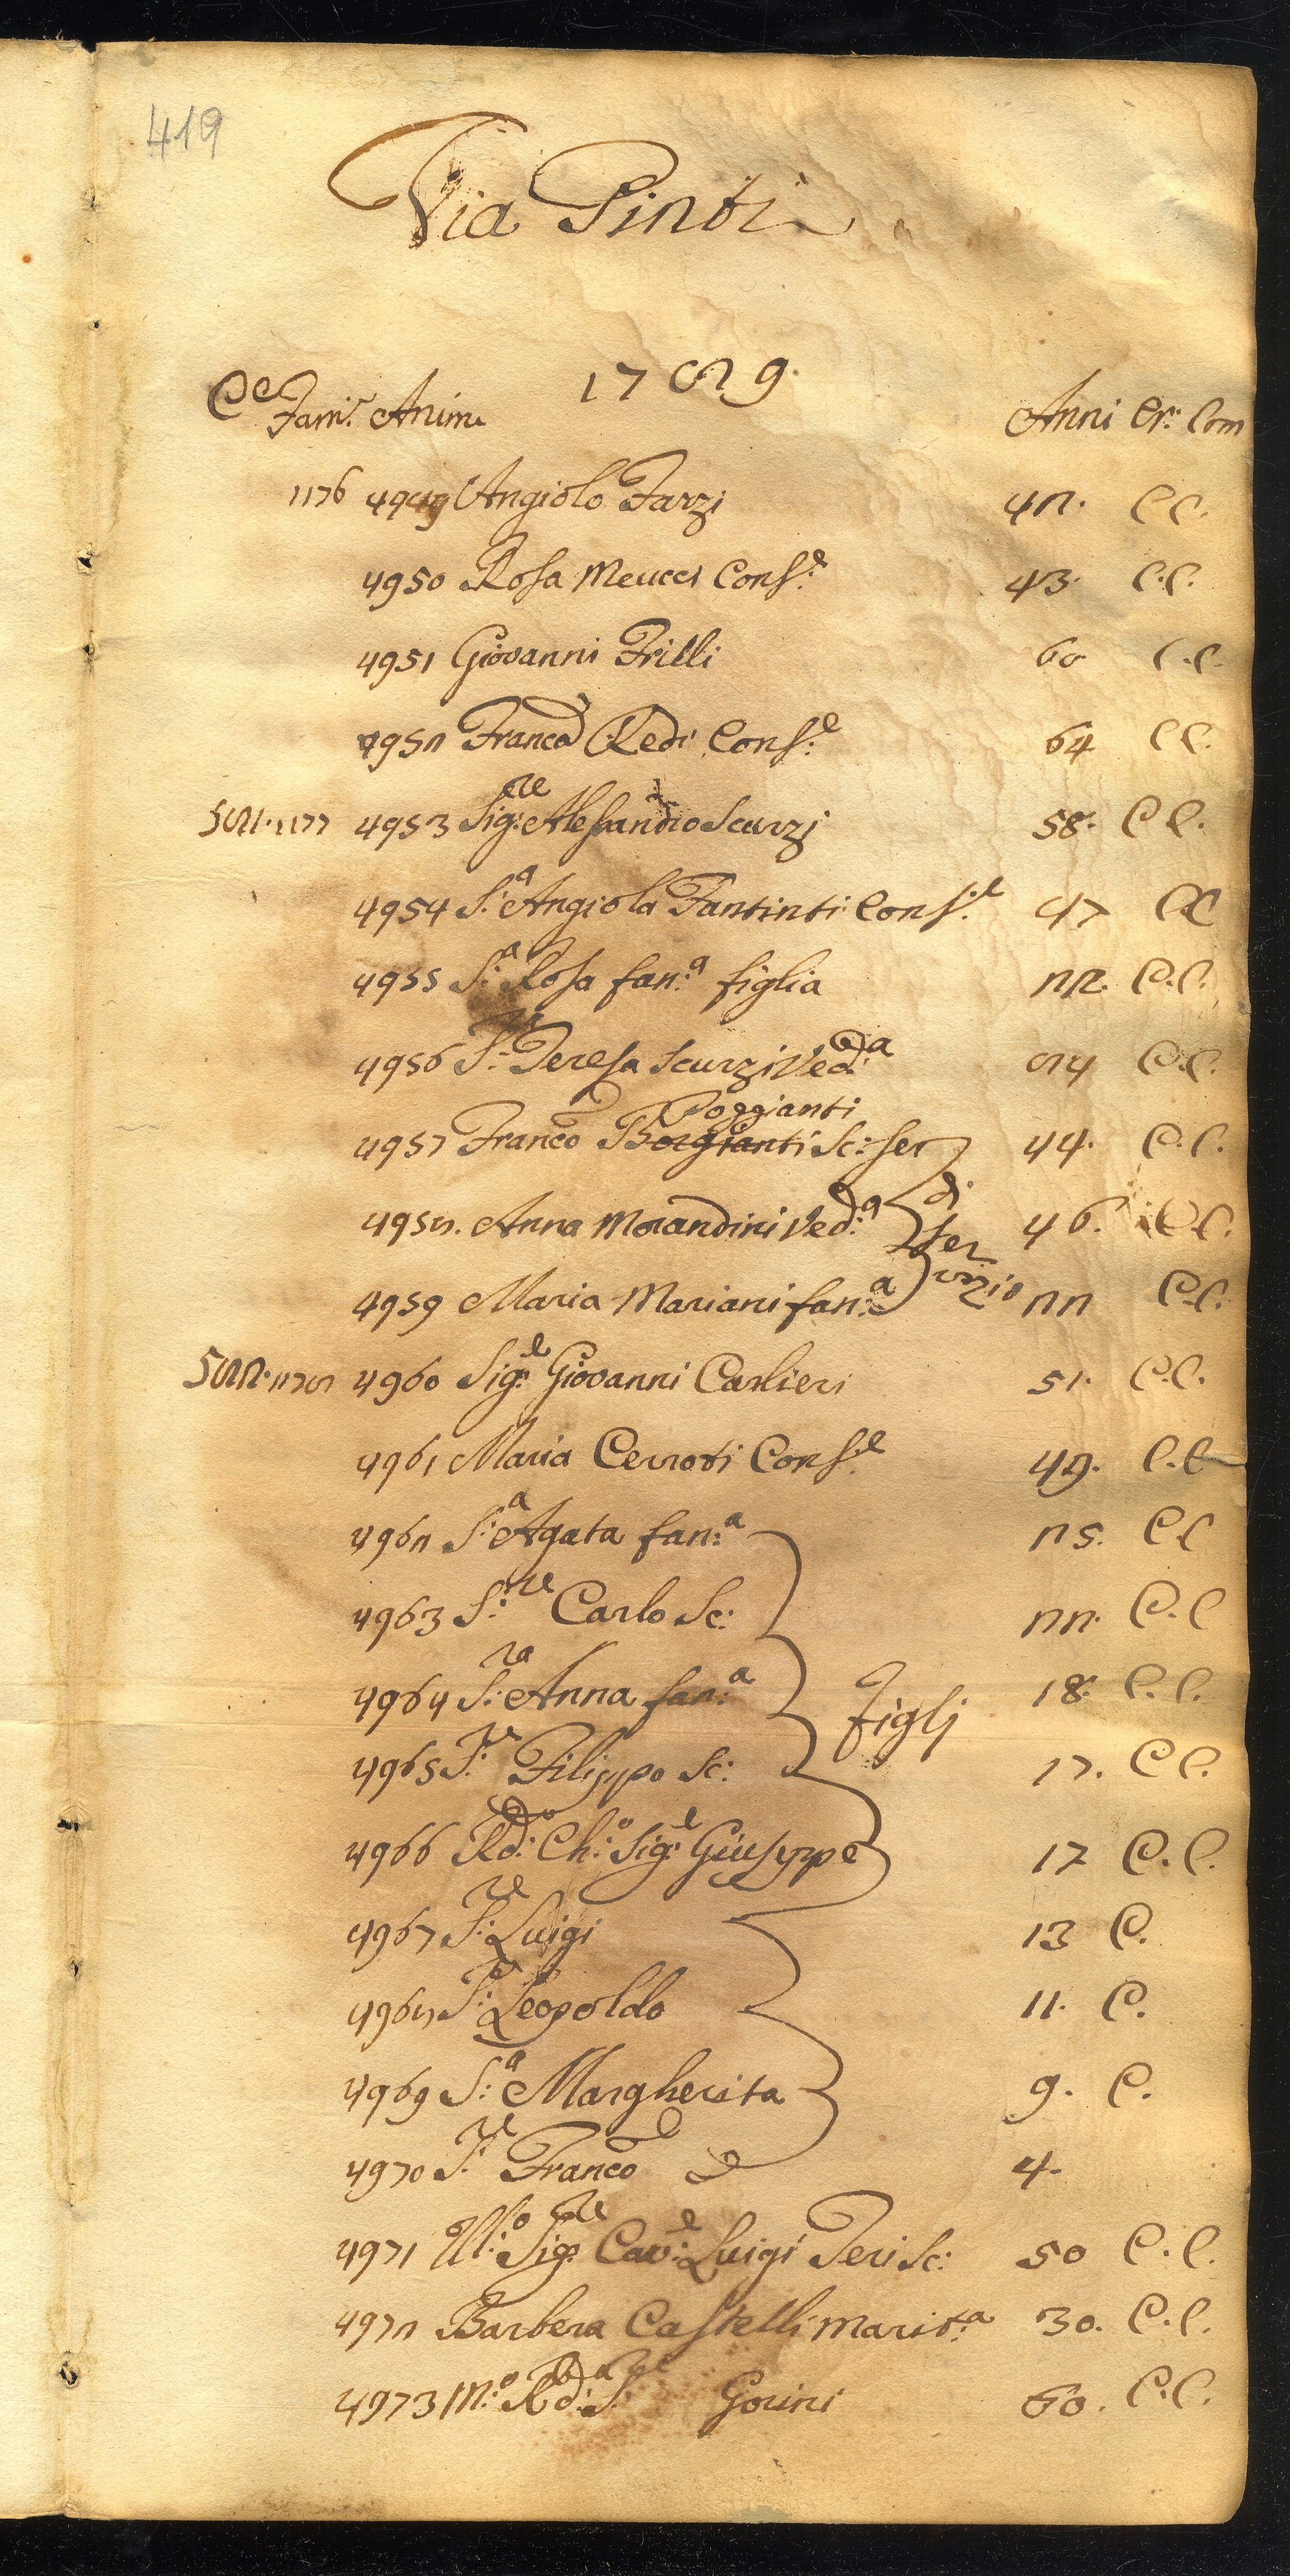 419
Via Pinti
1789.
Ce Fam:e Anime Anni Cr: Com
1176 4949 Angiolo Farzi 42. C C.
4950 Rosa Meucci Cons:e 43. C.C.
4951 Giovanni Frilli 60 C.C.
4952 Franca Redi Cons:e 64 C C.
581. 1177 4953 Sig:re Alessandro Scarzi 58. C C.
4954 S:a Angiola Fantinti Cons:e 47 C C
4955 S:a Rosa fan:a figlia 22. C.C.
4956 S:ra Teresa Scurzi Ved:a 84 C.C.
Poggianti
4957 Franco Borgianti Sc: ser 44. C.C.
4958. Anna Morandini Ved:a 46. C.C.
di ser vizio
4959 Maria Mariani fan:a 22 C.C.
582. 1178 4960 Sig:e Giovanni Carlieri 51. C.C.
4961 Maria Cerroti Cons:e 49. C.C
4962 S:a Agata fan:a 25. C.C
4963 S:re Carlo Sc: 22. C.C
4964 S:ra Anna fan:a 18. C.C.
figlj
4965 S:re Filippo Sc: 17. C C.
4966 Rd:o Ch:o Sig:e Giuseppe 17 C.C.
4967 S:re Luigi 13 C.
4968 S:re Leopoldo 11. C.
4969 S:a Margherita 9. C.
4970 S:re Franco 4.
4971 Ill:o Sig:re Cav:e Luigi Peri Sc: 50 C.C.
4972 Barbera Castelli Marit:a 30. C.C.
4973 M:o Rd:o S:re Gorini 60. C.C.